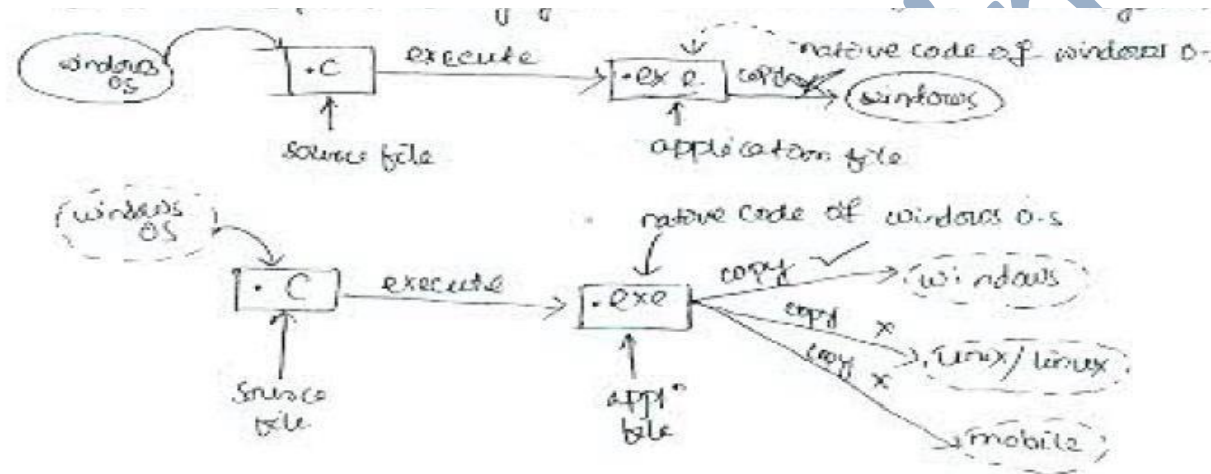 windows
os
.C
execute
.exe
copy
native code of windows o.s
windows
source file
application file
windows
OS
.C
execute
native code of windows o.s
.exe
copy
windows
copy x
unix/linux
copy x
mobile
source
file
appln
file